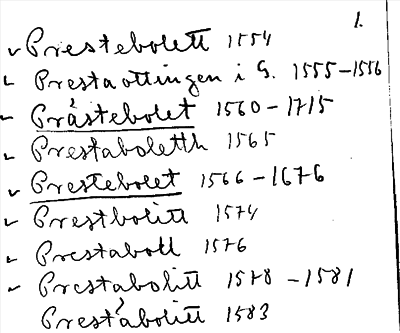 1.
✓ Prestebolett 1554
✓ Prestaottingen i G. 1555-1556
✓ Pråstebolet 1560-1715
✓ Prestaboletth 1565
✓ Prestebolet 1566-1676
✓ Prestbolitt 1574
✓ Prestaboll 1576
✓ Prestabolitt 1578-1581
Prestabolitt 1583